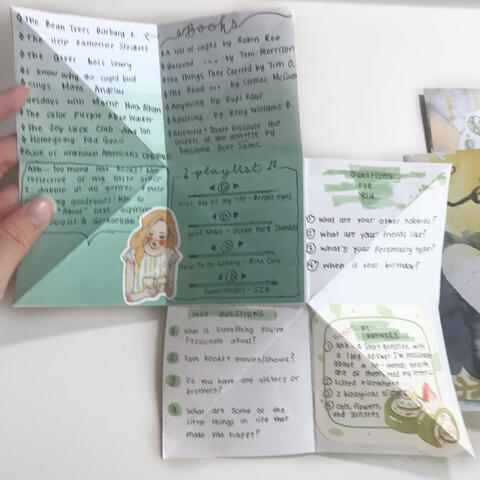 ◊ The Bean Trees Barbara K.
◊ The Help Kathrine Stockett
◊ The Giver Lois Lowry
◊ I know why the caged bird
sings Maya Angelou
Tuesdays with Morrie Mitch Albom
◊ The Color Purple Alice Walker
◊ The Joy Luck Club Amy Tan
◊ Homegoing Yaa Gyasi
◊ Book of unknown Americans
Ahh... too many
reflective of my
I dabble in all genres.
my goodreads!
"About" says aspiring
& Genhoelian!
Books
◊ A list of cages by Robin Roe
◊ Beloved ... by Toni Morrison
◊ The Things They Carried by Tim O.
◊ The Road ... by Cormac McCar
◊ Anything by Rupi Kaur
◊ Adulting by Kelly Williams B.
◊ Aristotle + Dante Discover the
Secrets of the Universe by
Benjamin Alire Sáenz
playlist
First day of my life - Bright eyes
Good News - Ocean Park Standoff
How to be lonely - Rita Ora
Supermodel - SZA
Questions
FOR
YOU
① What are your other hobbies?
② What are your friends like?
③ What's your personality type?
④ When is your birthday?
QUESTIONS
1 What is something you're
passionate about?
2 Fave books + movies/shows?
3 Do you have any sisters or
brothers?
4 What are some of the
little things in life that
make you happy?
MY
ANSWERS
① Ahh.. a short question with
a long answer. I'm passionate
about a lot - mental health
one of them, read my letter
② Listed elsewhere
③ 2 biological
④ cats, flowers,
and sunsets